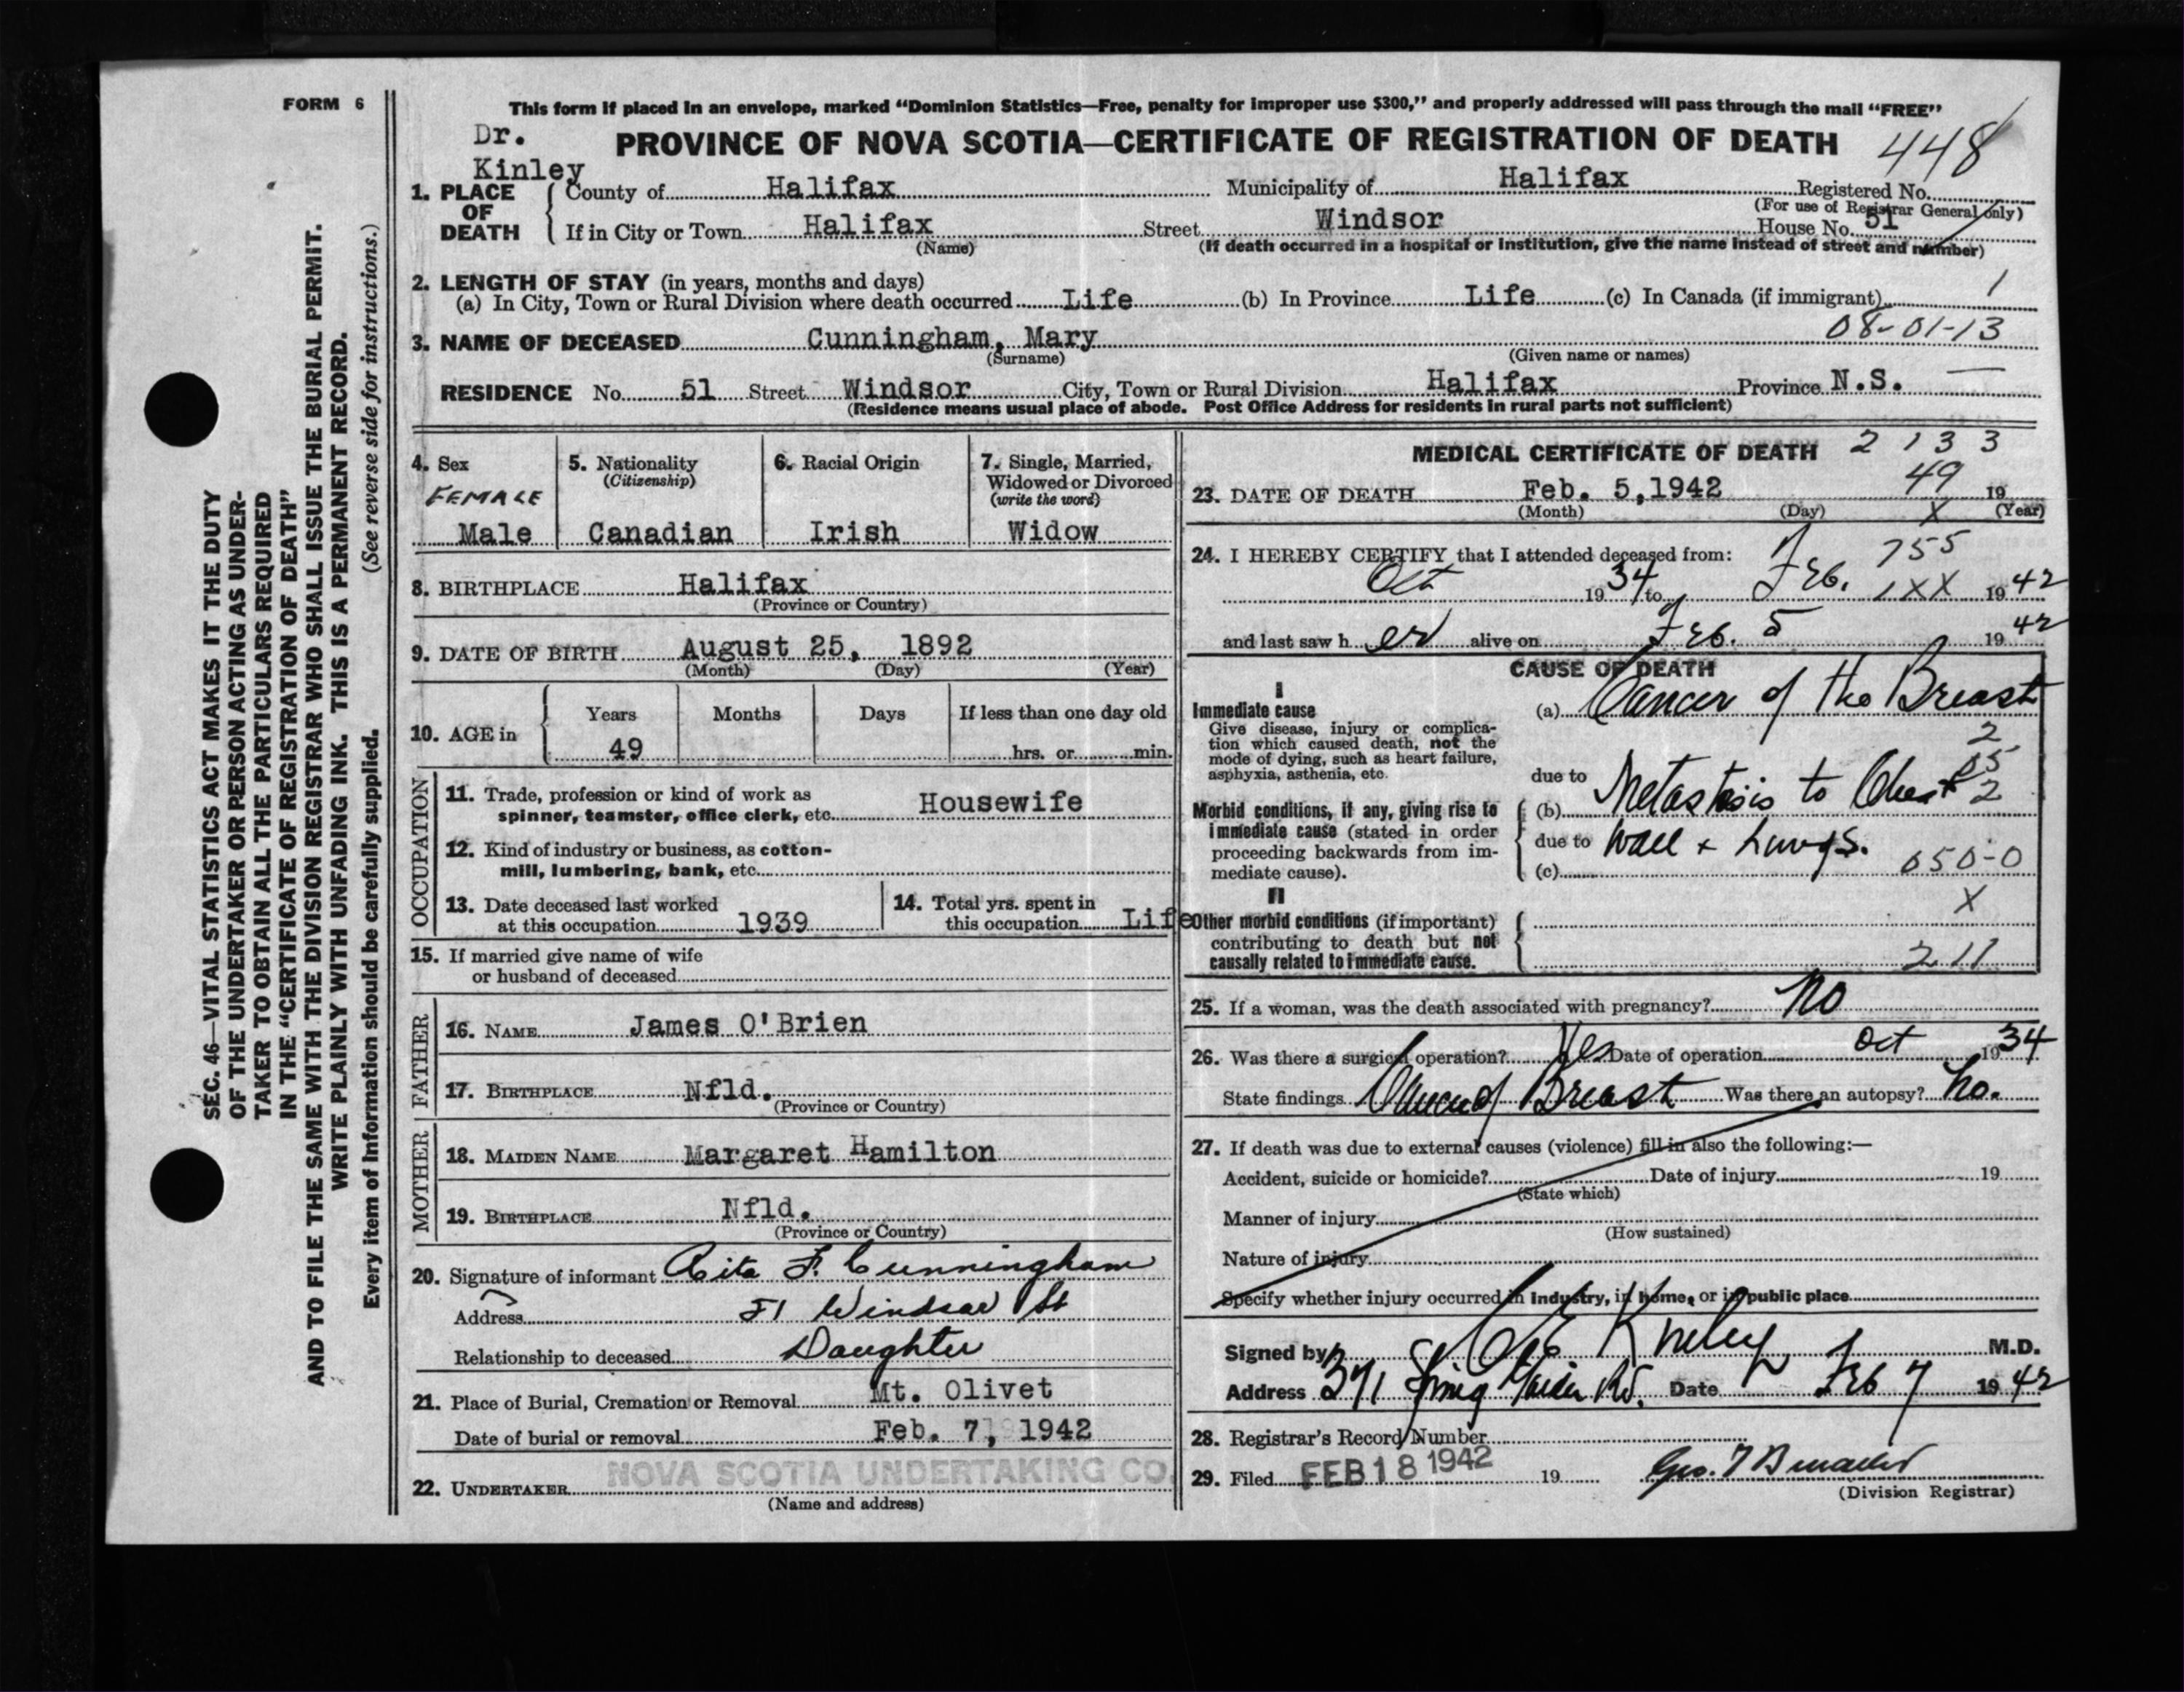 FORM 6
This form if placed in an envelope, marked “Dominion Statistics—Free, penalty for improper use $300,” and properly addressed will pass through the mail “FREE”
Dr.
Kinley
PROVINCE OF NOVA SCOTIA—CERTIFICATE OF REGISTRATION OF DEATH
448
1. PLACE OF DEATH
County of Halifax Municipality of Halifax Registered No.
(For use of Registrar General only)
If in City or Town Halifax Street Windsor House No. 51
(Name) (If death occurred in a hospital or institution, give the name instead of street and number)
2. LENGTH OF STAY (in years, months and days)
(a) In City, Town or Rural Division where death occurred Life (b) In Province Life (c) In Canada (if immigrant) 1
08-01-13
3. NAME OF DECEASED Cunningham, Mary
(Surname) (Given name or names)
RESIDENCE No. 51 Street Windsor City, Town or Rural Division Halifax Province N.S.
(Residence means usual place of abode. Post Office Address for residents in rural parts not sufficient)
4. Sex
FEMALE
Male
5. Nationality
(Citizenship)
Canadian
6. Racial Origin
Irish
7. Single, Married,
Widowed or Divorced
(write the word)
Widow
8. BIRTHPLACE Halifax
(Province or Country)
9. DATE OF BIRTH August 25, 1892
(Month) (Day) (Year)
10. AGE in
Years Months Days If less than one day old
49 hrs. or min.
OCCUPATION
11. Trade, profession or kind of work as
spinner, teamster, office clerk, etc. Housewife
12. Kind of industry or business, as cotton-
mill, lumbering, bank, etc.
13. Date deceased last worked
at this occupation 1939
14. Total yrs. spent in
this occupation Life
15. If married give name of wife
or husband of deceased
FATHER
16. NAME James O'Brien
17. BIRTHPLACE Nfld.
(Province or Country)
MOTHER
18. MAIDEN NAME Margaret Hamilton
19. BIRTHPLACE Nfld.
(Province or Country)
20. Signature of informant Rita F. Cunningham
Address 51 Windsor St
Relationship to deceased Daughter
21. Place of Burial, Cremation or Removal Mt. Olivet
Date of burial or removal Feb. 7, 1942
22. UNDERTAKER NOVA SCOTIA UNDERTAKING CO.
(Name and address)
MEDICAL CERTIFICATE OF DEATH 2133
49
23. DATE OF DEATH Feb. 5,1942 19
(Month) (Day) X (Year)
24. I HEREBY CERTIFY that I attended deceased from: 755
Oct 1934 to Feb. 1XX 1942
and last saw her alive on Feb. 5 1942
CAUSE OF DEATH
I
Immediate cause
Give disease, injury or complica-
tion which caused death, not the
mode of dying, such as heart failure,
asphyxia, asthenia, etc.
(a) Cancer of the Breast
2
05
2
due to
Morbid conditions, if any, giving rise to
immediate cause (stated in order
proceeding backwards from im-
mediate cause).
(b) Metastasis to Chest
due to Wall + Lungs.
(c) 050-0
X
II
Other morbid conditions (if important)
contributing to death but not
causally related to immediate cause.
211
25. If a woman, was the death associated with pregnancy? No
26. Was there a surgical operation? Yes Date of operation Oct 1934
State findings Cancer of Breast Was there an autopsy? No.
27. If death was due to external causes (violence) fill in also the following:—
Accident, suicide or homicide? Date of injury 19
(State which)
Manner of injury
(How sustained)
Nature of injury
Specify whether injury occurred in Industry, in home, or in public place
Signed by Kinley M.D.
Address 371 Spring Garden Rd. Date Feb 7 1942
28. Registrar's Record Number
29. Filed FEB 18 1942 19
(Division Registrar)
SEC. 46—VITAL STATISTICS ACT MAKES IT THE DUTY
OF THE UNDERTAKER OR PERSON ACTING AS UNDER-
TAKER TO OBTAIN ALL THE PARTICULARS REQUIRED
IN THE “CERTIFICATE OF REGISTRATION OF DEATH”
AND TO FILE THE SAME WITH THE DIVISION REGISTRAR WHO SHALL ISSUE THE BURIAL PERMIT.
WRITE PLAINLY WITH UNFADING INK. THIS IS A PERMANENT RECORD.
Every item of Information should be carefully supplied. (See reverse side for instructions.)